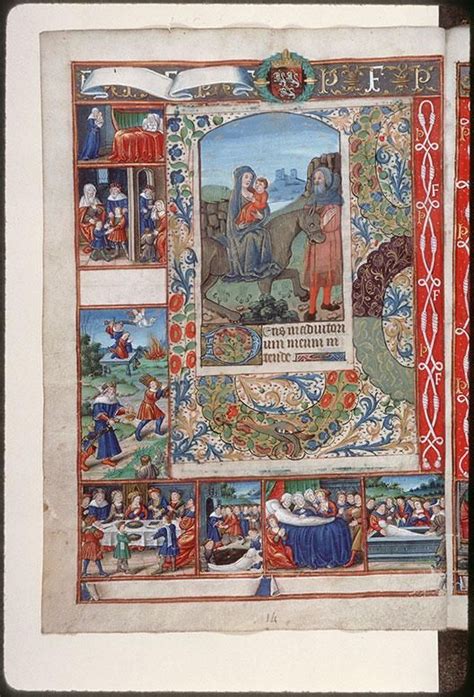 P F P
Deus in adiutori
um meum in
tende
F
F
F
14